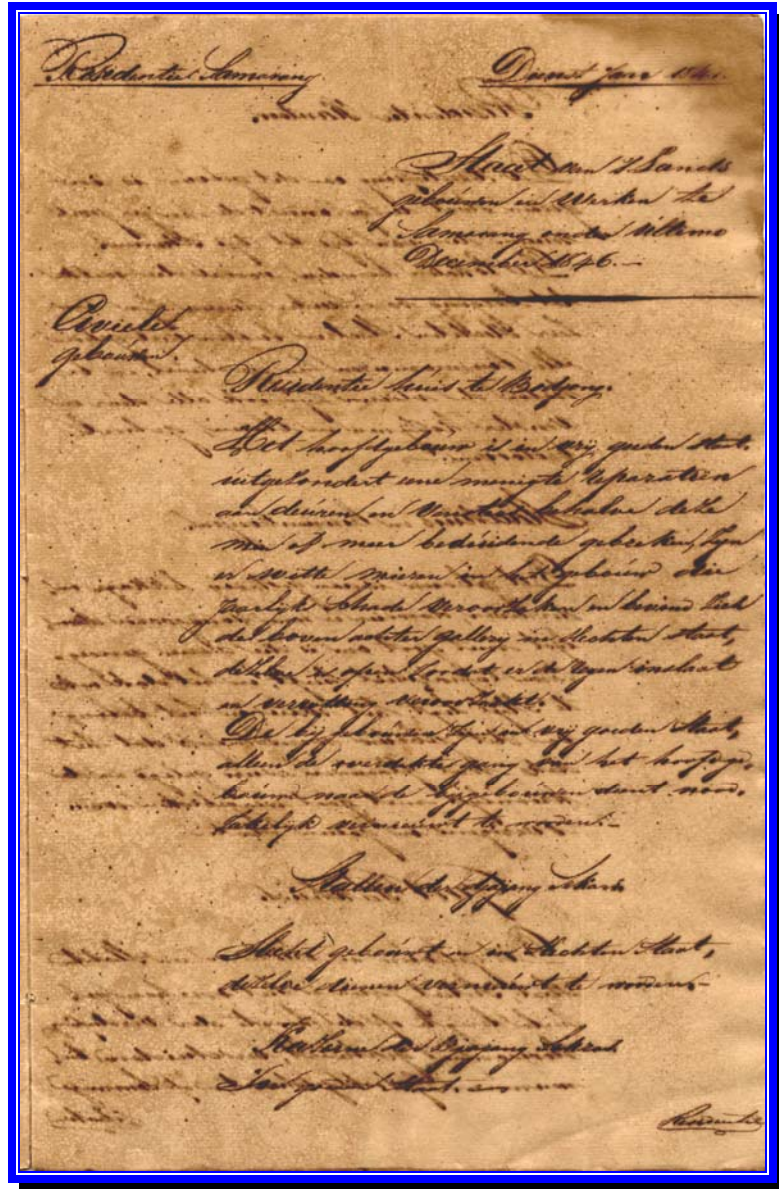 Residentie Samarang
Dienst Jaar 184
Staat van 's Lands
gebouwen en Werken te
Samarang onder ultimo
December 1846.
Civiele
gebouwen.
Residentie huis te Bodjong.
Het hoofdgebouw is in vrij goeden staat.
uitgezondert eene menigte reparatien
aan deuren en behalve deze
min of meer beduidende gebreken, zijn
er witte mieren in het gebouw die
jaarlyk schade veroorzaken en bevind zich
de boven achter gallery in slechten staat,
dezelve is open zoodat er de regen inslaat
en verrotting veroorzaakt.
De bij gebouwen zijn in vrij goeden staat,
alleen de overdekte gang van het hoofdge-
bouw naar de bijgebouwen dient nood-
zakelyk vernieuwt te worden.
Stallen der Djajang Sekars
Slecht gebouwt en in slechten staat,
dezelve dienen vernieuwt te worden.
Kazerne der Djajang Sekars
In goeden staat.
Residentie